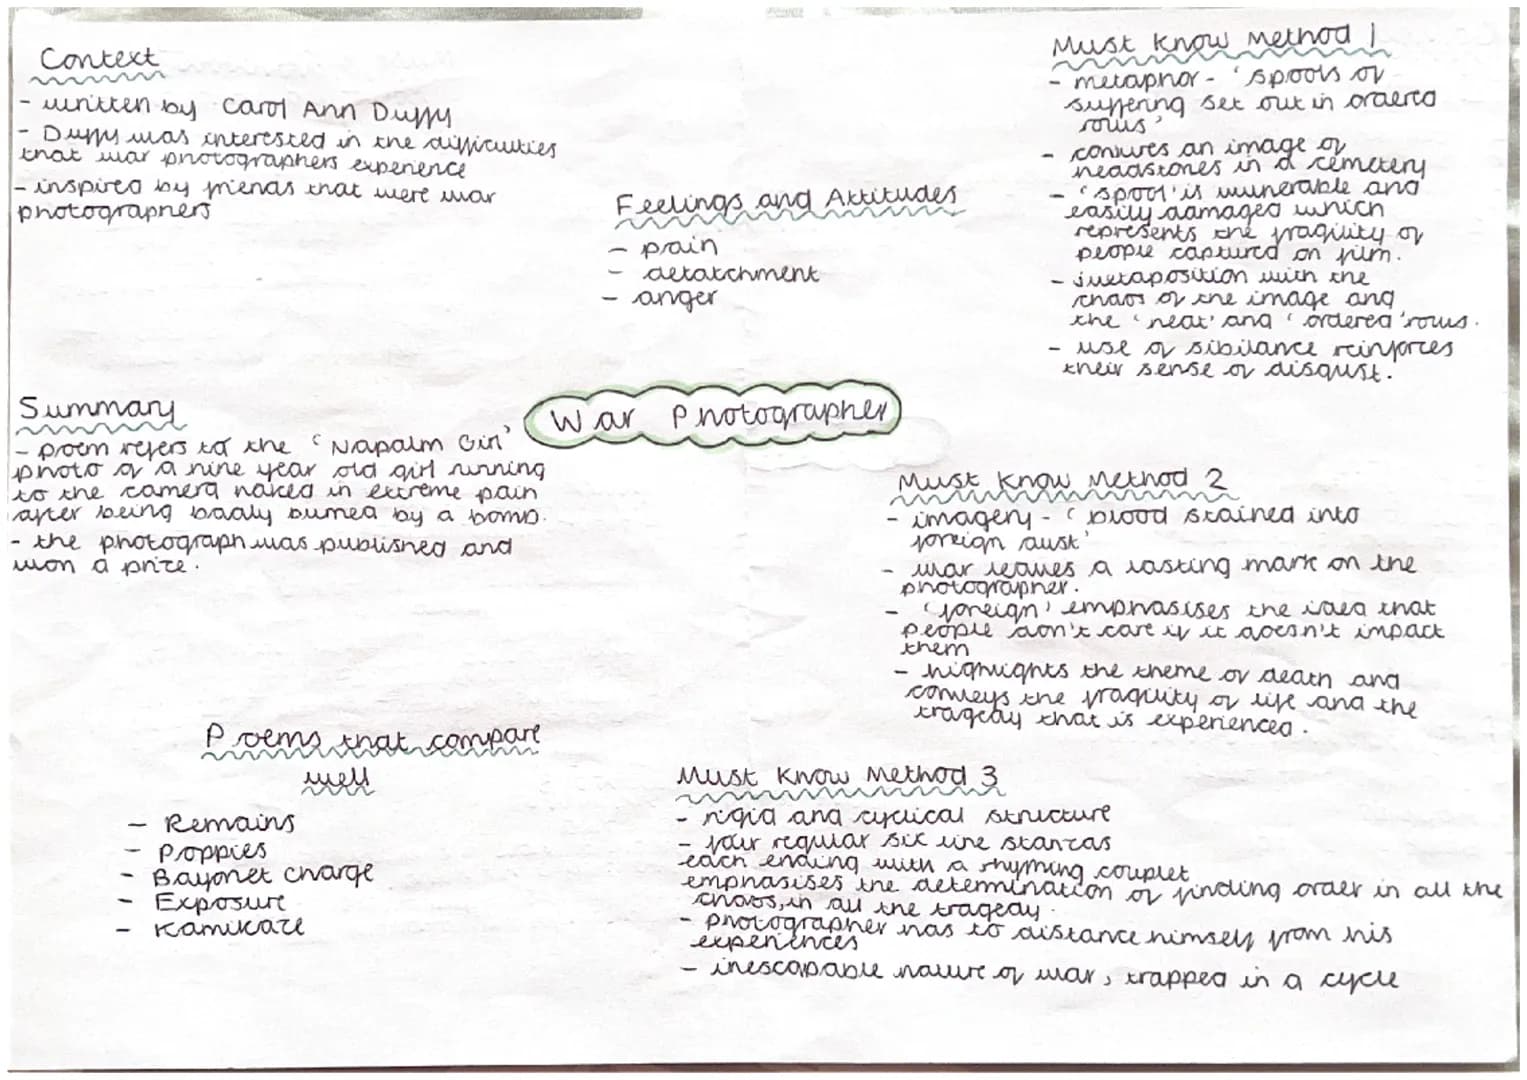 Context
- written by Carol Ann Duffy
- Duffy was interested in the difficulties
that war photographers experience
- inspired by friends that were war
photographers
Feelings and Attitudes
- pain
- detatchment
- anger
Must Know Method 1
- metaphor - 'spools of
suffering set out in ordered
rows'
- conives an image of
headstones in a cemetery
- 'spool' is vulnerable and
easily damaged which
represents the fragility of
people captured on film.
- juxtaposition with the
chaos of the image and
the 'neat' and 'ordered' rows.
- use of sibilance reinforces
their sense of disgust.
War Photographer
Summary
- poem refers to the 'Napalm Girl'
photo of a nine year old girl running
to the camera naked in extreme pain
after being badly burned by a bomb.
- the photograph was published and
won a prize.
Must Know Method 2
- imagery - 'blood stained into
foreign dust'
- war leaves a lasting mark on the
photographer.
- 'foreign' emphasises the idea that
people don't care if it doesn't impact
them
- highlights the theme of death and
conveys the fragility of life and the
tragedy that is experienced.
Poems that compare
well
- Remains
- Poppies
- Bayonet charge
- Exposure
- Kamikaze
Must Know Method 3
- rigid and cyclical structure
- four regular six line stanzas
each ending with a rhyming couplet
emphasises the determination of finding order in all the
chaos, in all the tragedy.
- photographer has to distance himself from his
experiences
- inescapable nature of war, trapped in a cycle